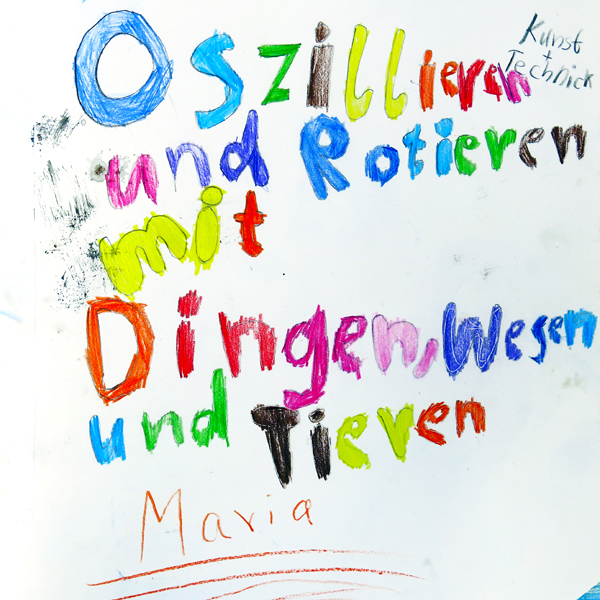 Oszillieren
Kunst
+
Technick
und Rotieren
mit
Dingen, Wesen
und Tieren
Maria